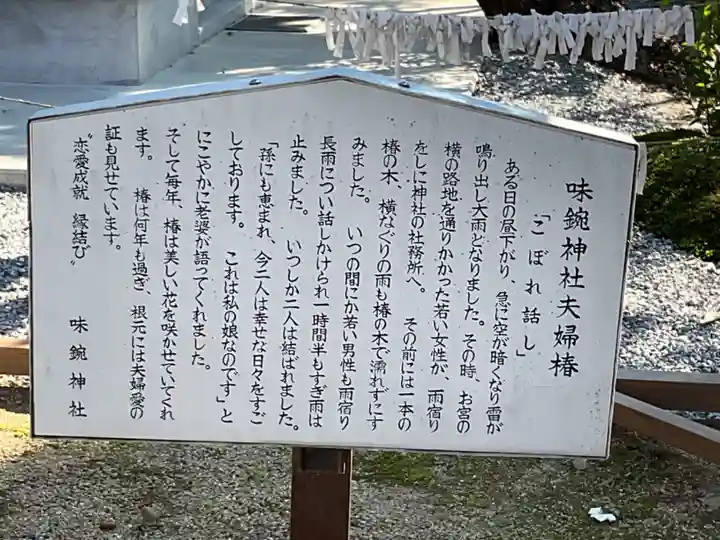 味鋺神社夫婦椿
「こぼれ話し」
ある日の昼下がり、急に空が暗くなり雷が
鳴り出し大雨となりました。その時、お宮の
横の路地を通りかかった若い女性が、雨宿り
をしに神社の社務所へ。その前には一本の
椿の木、横なぐりの雨も椿の木で濡れずにす
みました。いつの間にか若い男性も雨宿り
長雨につい話しかけられ一時間半もすぎ雨は
止みました。いつしか二人は結ばれました。
「孫にも恵まれ、今二人は幸せな日々をすご
しております。これは私の娘なのです」と
にこやかに老婆が語ってくれました。
そして毎年、椿は美しい花を咲かせていてくれ
ます。椿は何年も過ぎ、根元には夫婦愛の
証も見せています。
〝恋愛成就 縁結び〟
味鋺神社